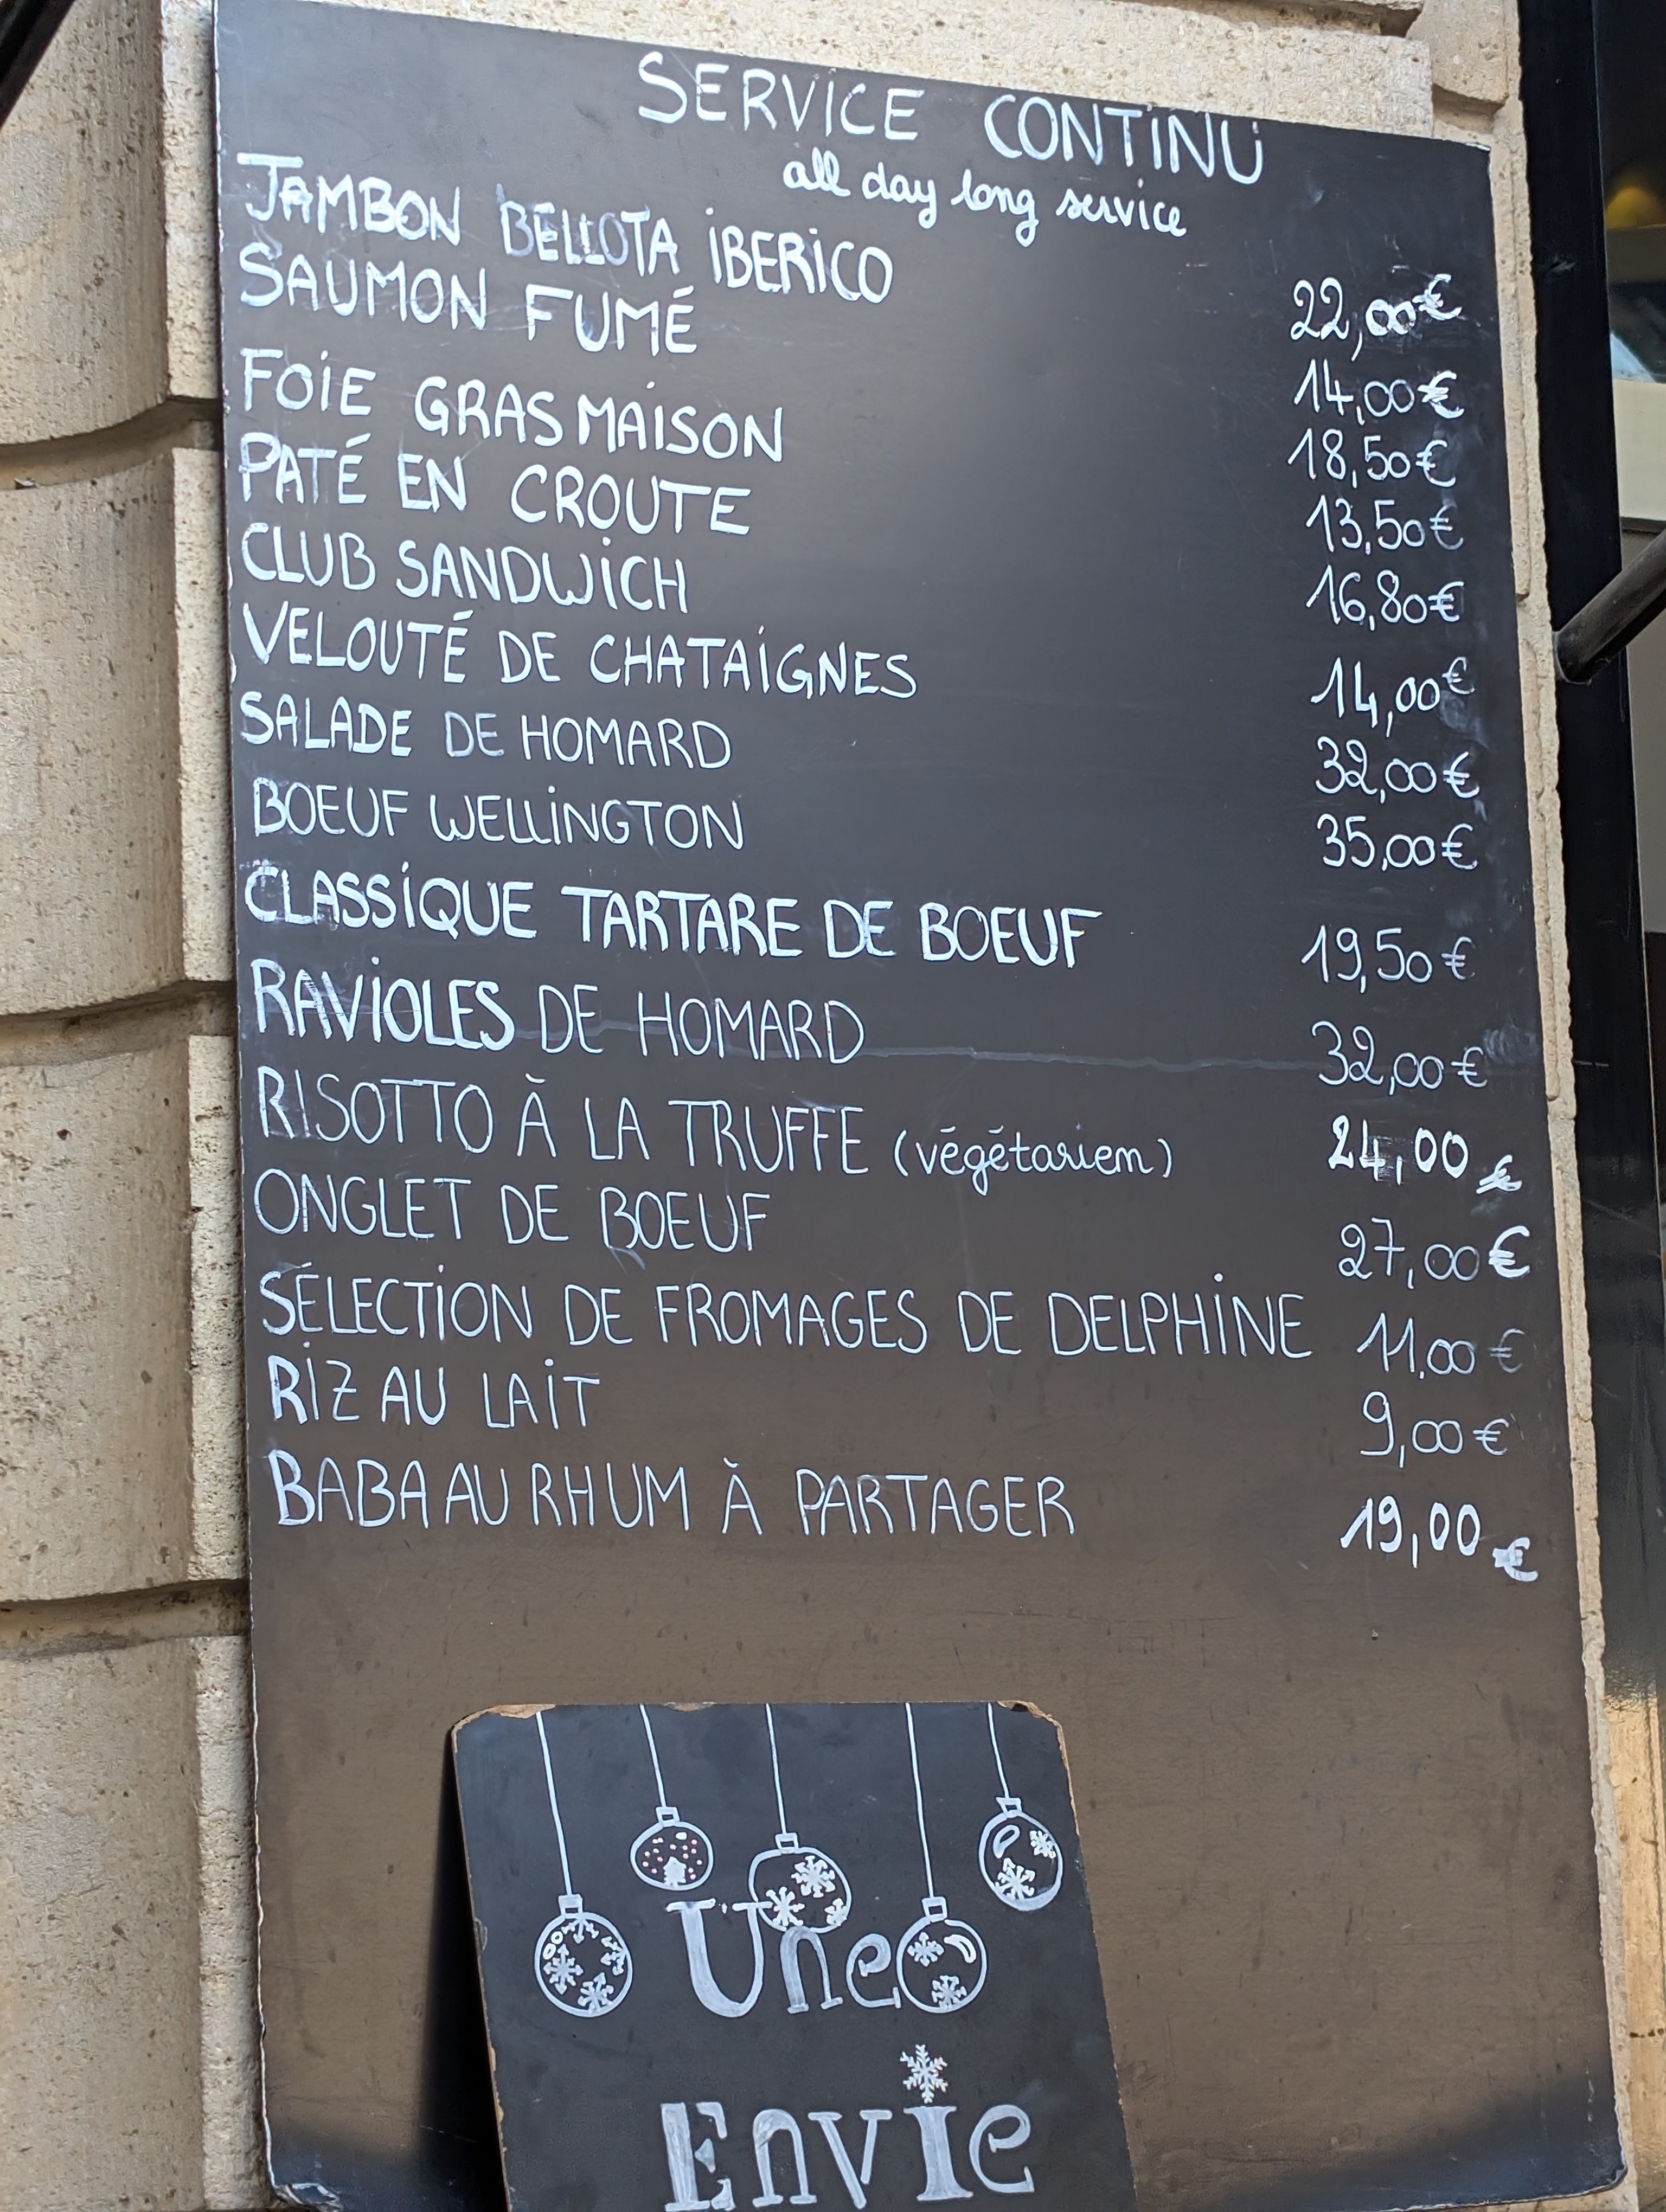 SERVICE CONTINU
all day long service
JAMBON BELLOTA IBERICO 22,00€
SAUMON FUMÉ 14,00€
FOIE GRAS MAISON 18,50€
PATÉ EN CROUTE 13,50€
CLUB SANDWICH 16,80€
VELOUTÉ DE CHATAIGNES 14,00€
SALADE DE HOMARD 32,00€
BOEUF WELLINGTON 35,00€
CLASSIQUE TARTARE DE BOEUF 19,50€
RAVIOLES DE HOMARD 32,00€
RISOTTO À LA TRUFFE (végétarien) 24,00€
ONGLET DE BOEUF 27,00€
SÉLECTION DE FROMAGES DE DELPHINE 11,00€
RIZ AU LAIT 9,00€
BABA AU RHUM À PARTAGER 19,00€
Une
Envie